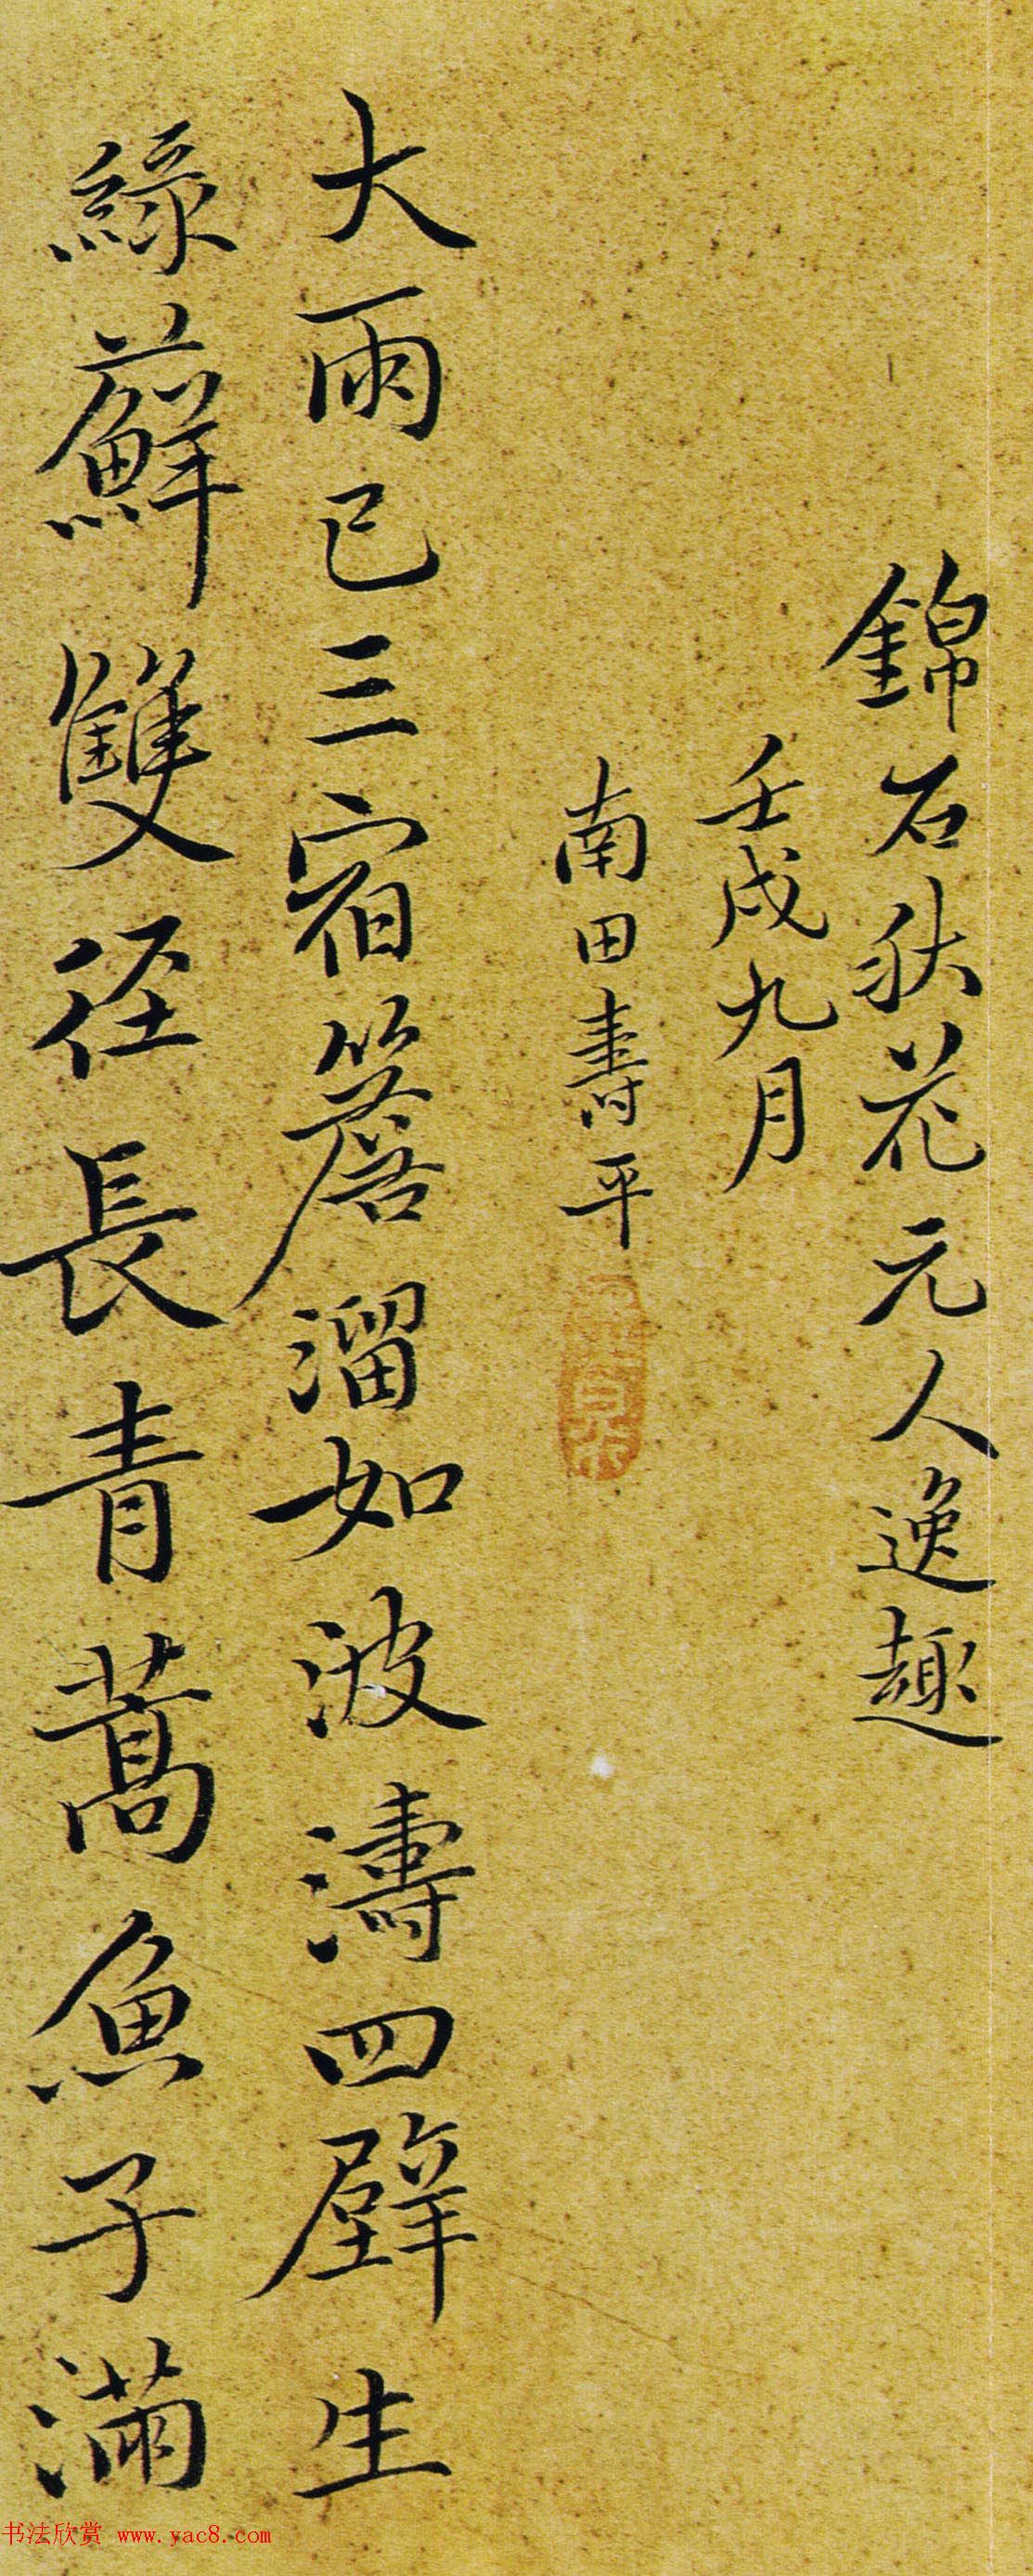 錦石秋花元人逸趣
壬戌九月
南田壽平
大雨已三宿簷溜如波濤四壁生
綠蘚雙徑長青蒿魚子滿
书法欣赏 www.yac8.com